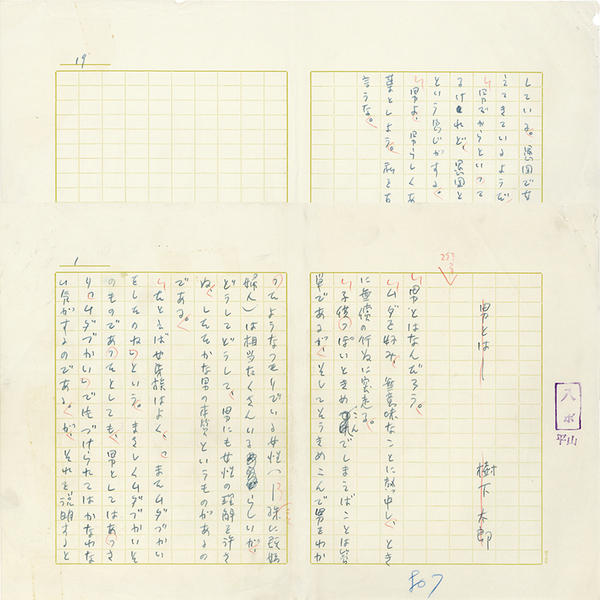 している。異国で女
えてきているようだ
男だからといって
るけれど、異国と
という感じがする。
男よ、男らしくあ
葉としよう。私をお
言うな。
19
男とは――
樹下太郎
男とはなんだろう。
ムダを好み、無意味なことに熱中し、とき
に無償の行為に突走る。
子供っぽいときめこんでしまえばことは簡
単であるが、そしてそうきめこんで男をわか
ったようなつもりでいる女性(特に既婚
婦人)は相当たくさんいるらしいが、
どうしてどうして、男にも女性の理解を許さ
ぬ、したたかな男の本質というものがあるの
である。
たとえば女族はよく、またムダづかい
をしたのね、という。まさしくムダづかいそ
のものであったとしても、男としてはあっさ
りムダづかいでかたづけられてはかなわな
い気がするのである。が、それを説明すると
1
入ポ
平山